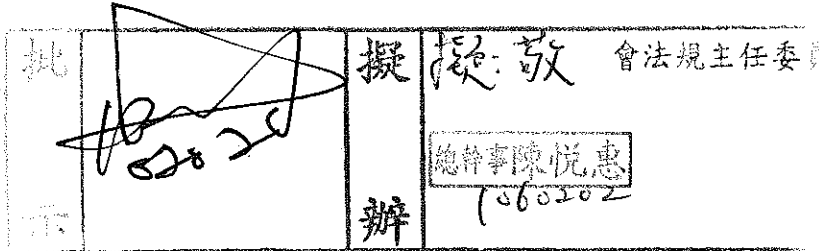 批示
擬辦
擬：敬會法規主任委
總幹事陳悅惠
1060202